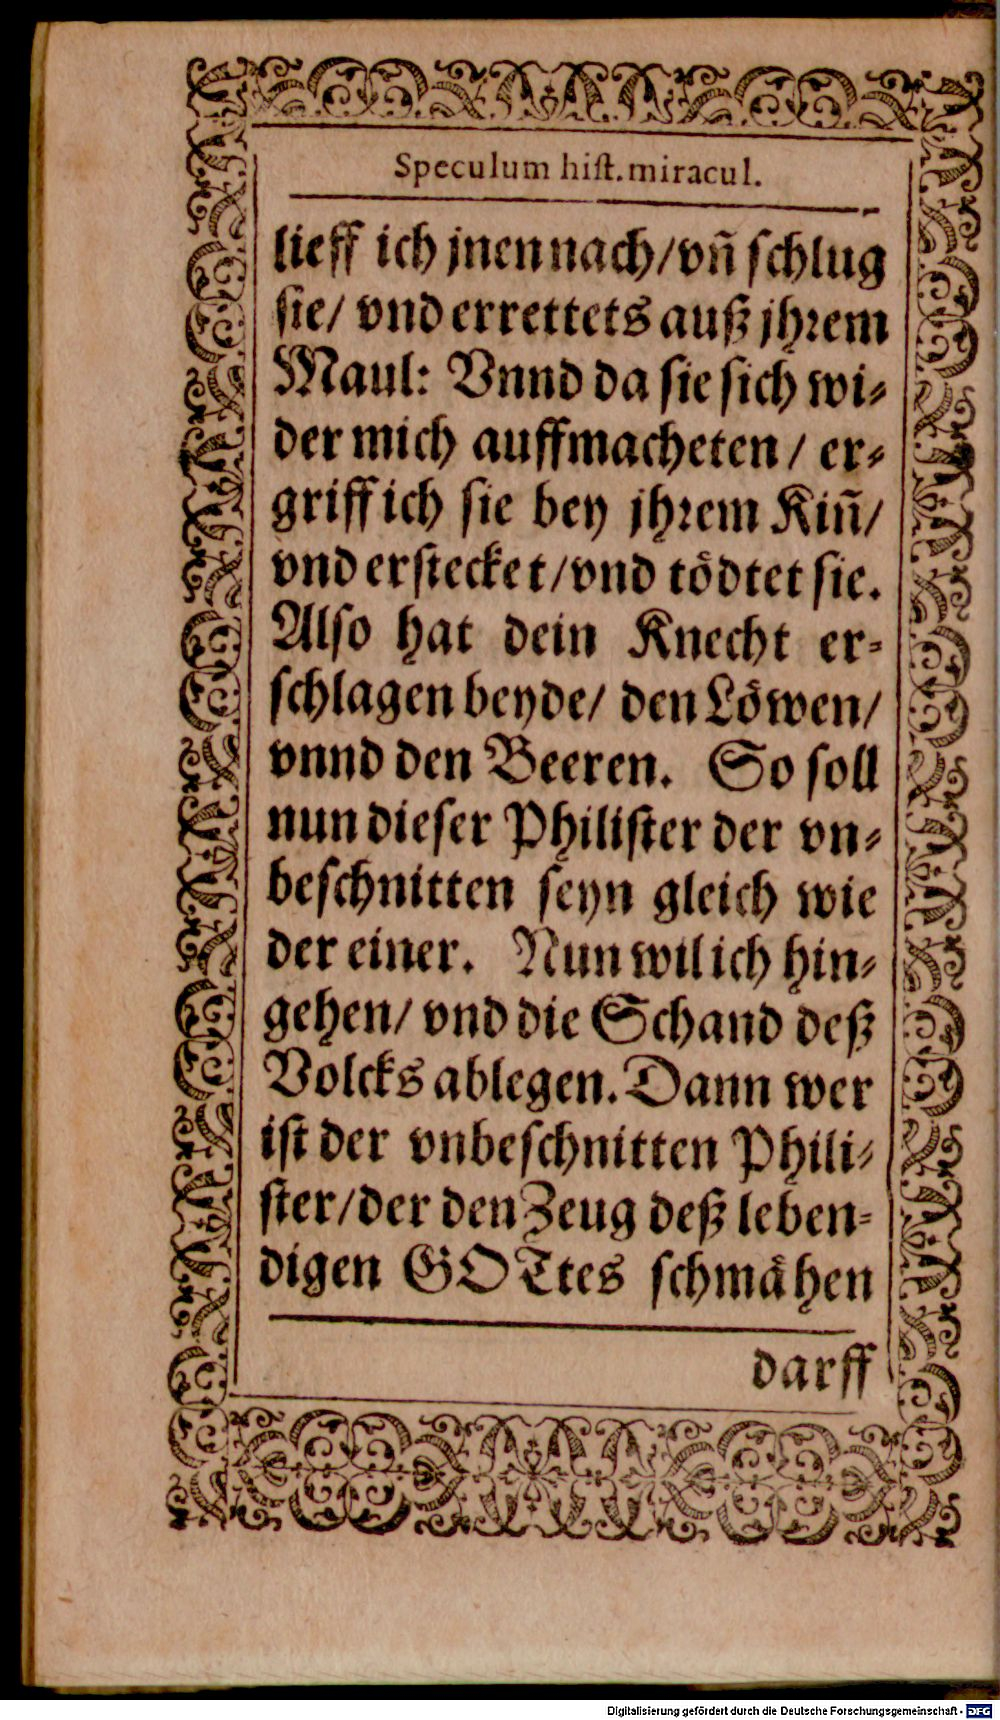 Speculum hist. miracul.
lieff ich jnen nach/ vñ schlug
sie/ vnd errettets auß jhrem
Maul: Vnnd da sie sich wi-
der mich auffmacheten / er-
griff ich sie bey jhrem Kiñ/
vnd erstecket/ vnd tödtet sie.
Also hat dein Knecht er-
schlagen beyde/ den Löwen/
vnnd den Beeren. So soll
nun dieser Philister der vn-
beschnitten seyn gleich wie
der einer. Nun wil ich hin-
gehen/ vnd die Schand deß
Volcks ablegen. Dann wer
ist der vnbeschnitten Phili-
ster/ der den Zeug deß leben-
digen GOTtes schmähen
darff
Digitalisierung gefördert durch die Deutsche Forschungsgemeinschaft - DFG